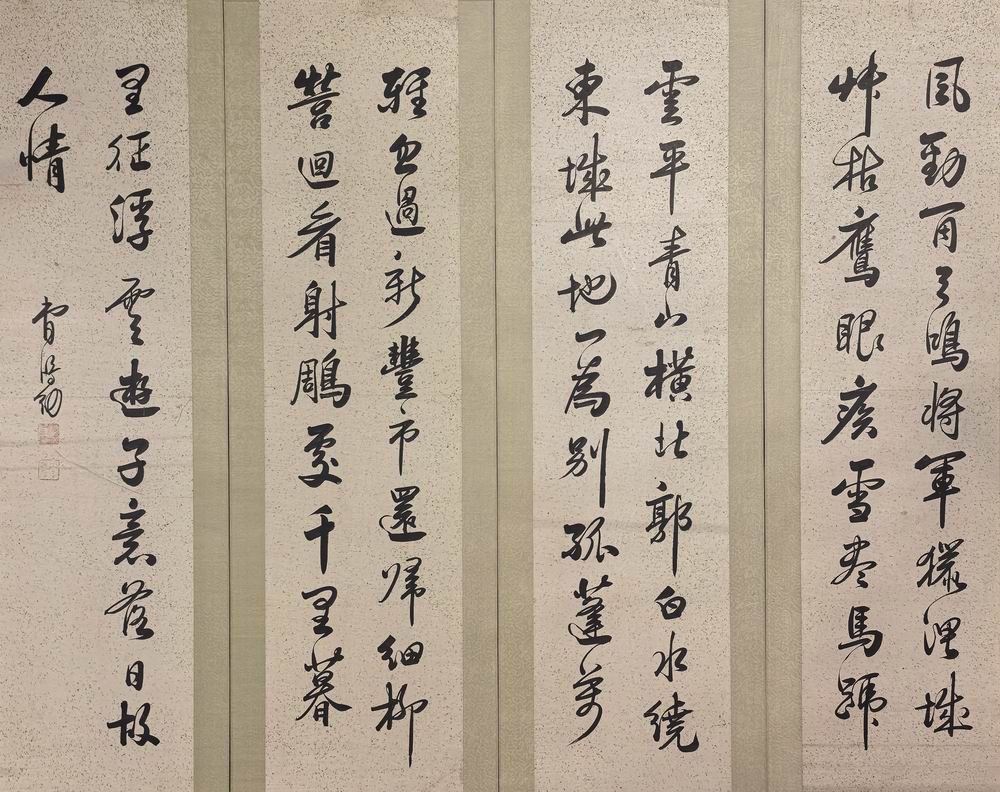 風勁角弓鳴將軍獵渭城
艸枯鷹眼疾雪盡馬蹄
雲平青山橫北郭白水繞
東城此地一為別孤蓬萬
輕忽過新豐市還歸細柳
營迴看射鵰處千里暮
里征浮雲遊子意落日故
人情
曹鴻勛